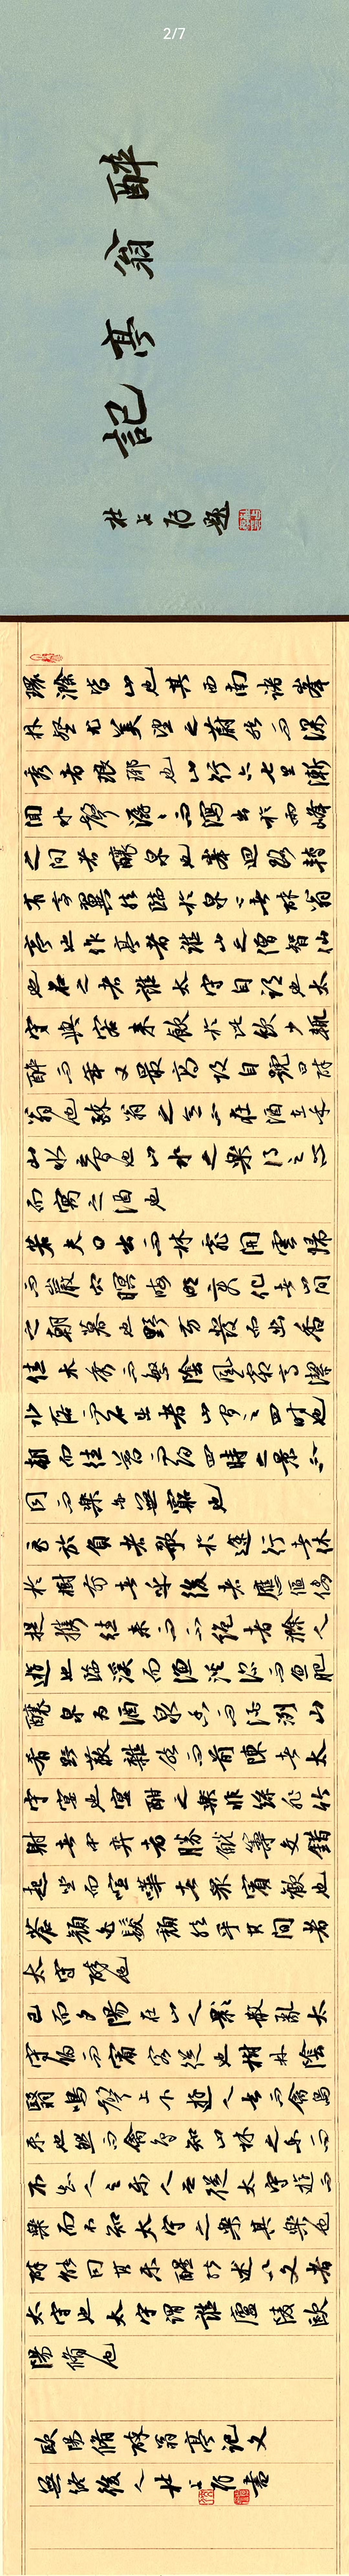 2/7
醉翁亭記
題
環滁皆山也其西南諸峰
林壑尤美望之蔚然而深
秀者琅琊也山行六七里漸
聞水聲潺潺而瀉出於兩峰
之間者釀泉也峯迴路轉
有亭翼然臨於泉上者醉翁
亭也作亭者誰山之僧智仙
也名之者誰太守自謂也太
守與客來飲於此飲少輒
醉而年又最高故自號曰醉
翁也醉翁之意不在酒在乎
山水之間也山水之樂得之心
而寓之酒也
若夫日出而林霏開雲歸
而巖穴暝晦明變化者山間
之朝暮也野芳發而幽香
佳木秀而繁陰風霜高潔
水落而石出者山間之四時也
朝而往暮而歸四時之景不
同而樂亦無窮也
至於負者歌於途行者休
於樹前者呼後者應傴僂
提攜往來而不絕者滁人
遊也臨溪而漁溪深而魚肥
釀泉為酒泉香而酒洌山
肴野蔌雜然而前陳者太
守宴也宴酣之樂非絲非竹
射者中弈者勝觥籌交錯
起坐而喧嘩者眾賓歡也
蒼顏白髮頹然乎其間者
太守醉也
已而夕陽在山人影散亂太
守歸而賓客從也樹林陰
翳鳴聲上下遊人去而禽鳥
樂也然而禽鳥知山林之樂而
不知人之樂人知從太守遊而
樂而不知太守之樂其樂也
醉能同其樂醒能述以文者
太守也太守謂誰廬陵歐
陽脩也
歐陽脩醉翁亭記文
後人杜占書